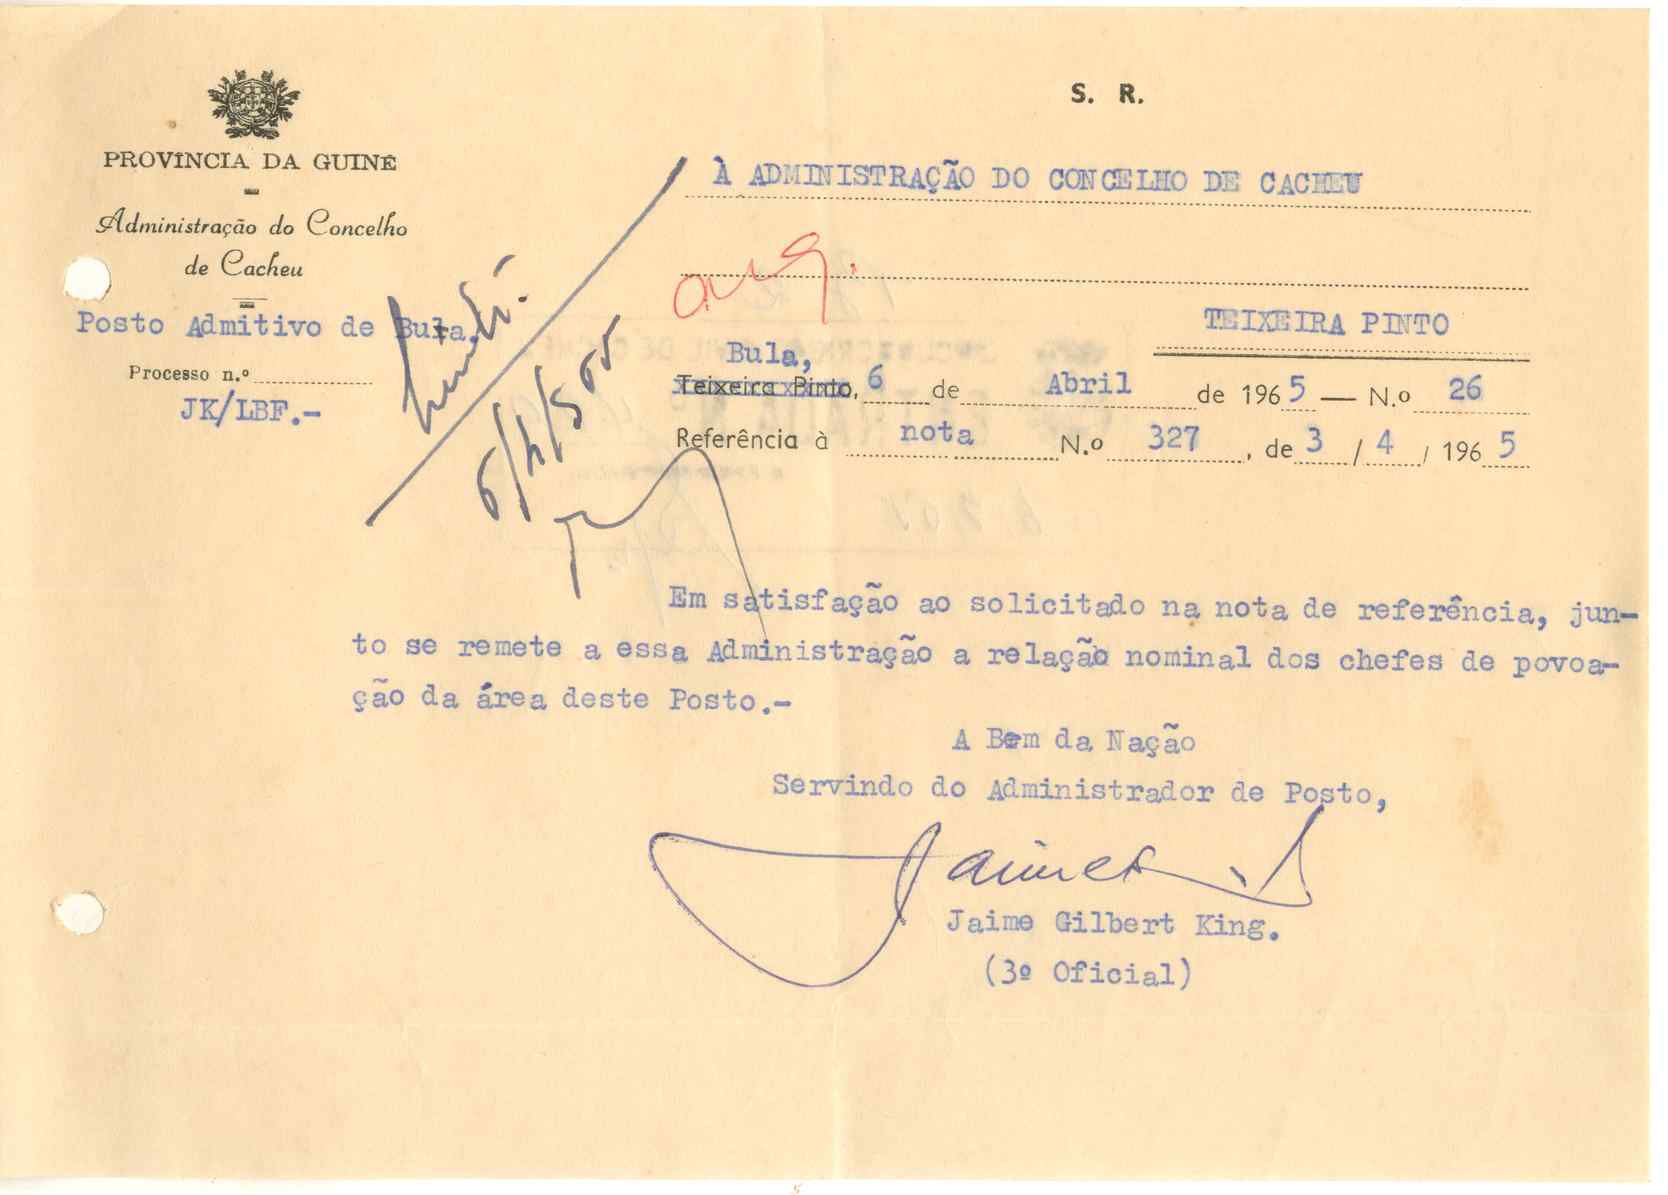 S. R.
PROVÍNCIA DA GUINÉ
Administração do Concelho
de Cacheu
Posto Admitivo de Bula.
Processo n.º
JK/LBF.-
À ADMINISTRAÇÃO DO CONCELHO DE CACHEU
TEIXEIRA PINTO
Bula,
Teixeira Pinto, 6 de Abril de 1965 — N.º 26
Referência à nota N.º 327, de 3 / 4 / 1965
Em satisfação ao solicitado na nota de referência, jun-
to se remete a essa Administração a relação nominal dos chefes de povoa-
ção da área deste Posto.-
A Bem da Nação
Servindo do Administrador de Posto,
Jaime Gilbert King.
(3º Oficial)